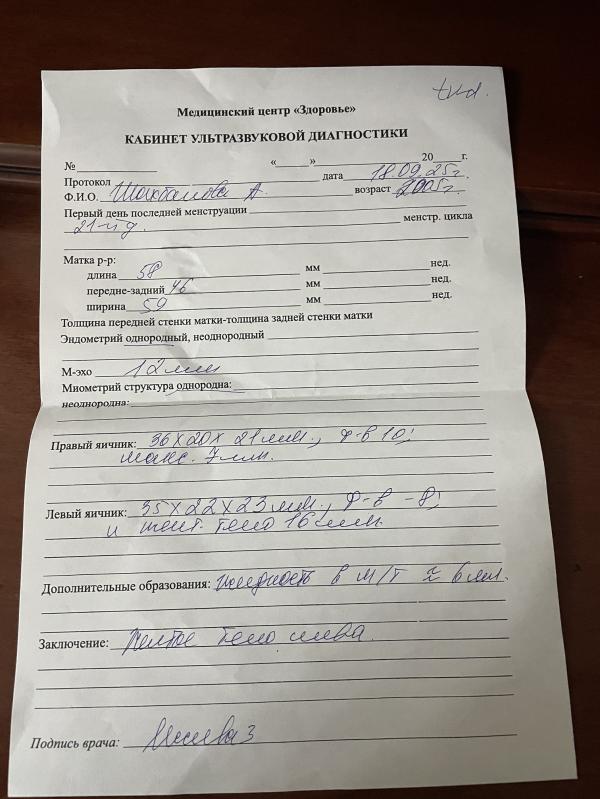 Медицинский центр «Здоровье»
КАБИНЕТ УЛЬТРАЗВУКОВОЙ ДИАГНОСТИКИ
№ «     » 20    г.
Протокол дата 18.09.25г.
Ф.И.О. А. возраст 2005г.
Первый день последней менструации менстр. цикла
21-й д.
Матка р-р:
длина 58 мм нед.
передне-задний 46 мм нед.
ширина 59 мм нед.
Толщина передней стенки матки-толщина задней стенки матки
Эндометрий однородный, неоднородный
М-эхо 12 мм
Миометрий структура однородна:
неоднородна:
Правый яичник: 36х20х21мм., ф-в 10;
макс. 7мм.
Левый яичник: 35х22х23мм., ф-в -8;
и желт. тело 16мм.
Дополнительные образования: жидкость в м/т ≈ 6мл.
Заключение: Желтое тело слева.
Подпись врача: